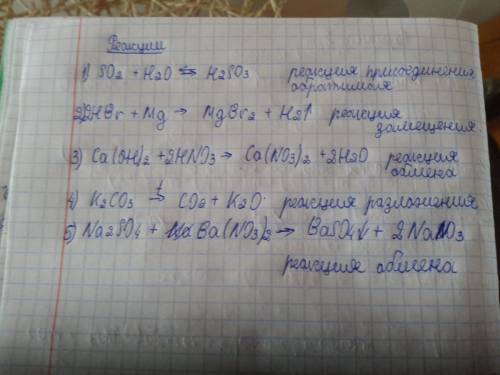 Реакции
1) SO2 + H2O ⇆ H2SO3 реакция присоединения
обратимая
2) 2HBr + Mg → MgBr2 + H2↑ реакция
замещения.
3) Ca(OH)2 + 2HNO3 → Ca(NO3)2 + 2H2O реакция
обмена
4) K2CO3 t→ CO2 + K2O реакция разложения
5) Na2SO4 + Ba(NO3)2 → BaSO4↓ + 2NaNO3
реакция обмена